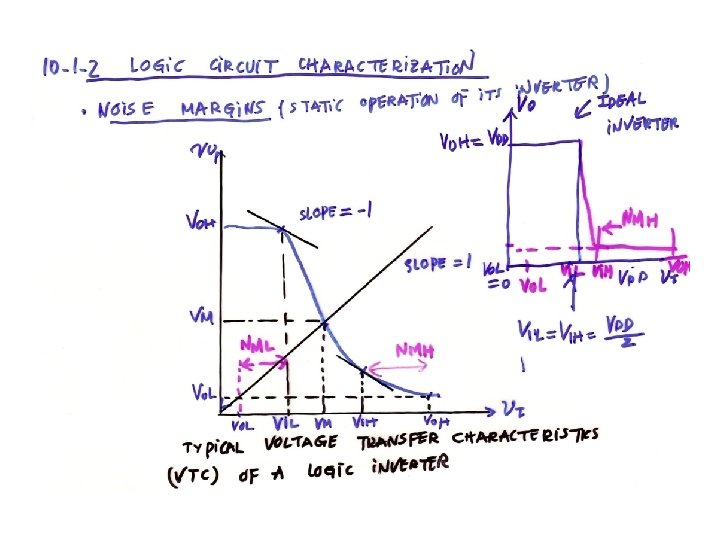 10-1-2 LOGIC CIRCUIT CHARACTERIZATION
• NOISE MARGINS (STATIC OPERATION OF ITS INVERTER)
VO
IDEAL
INVERTER
VOH = VDD
VOH
SLOPE = -1
SLOPE = 1
NMH
VOL
= 0
VOL
VIL
VIH
VDD
VI
VOH
VM
NML
NMH
VIL = VIH = VDD
2
VOL
VOL
VIL
VM
VIH
VOH
VI
TYPICAL VOLTAGE TRANSFER CHARACTERISTICS
(VTC) OF A LOGIC INVERTER